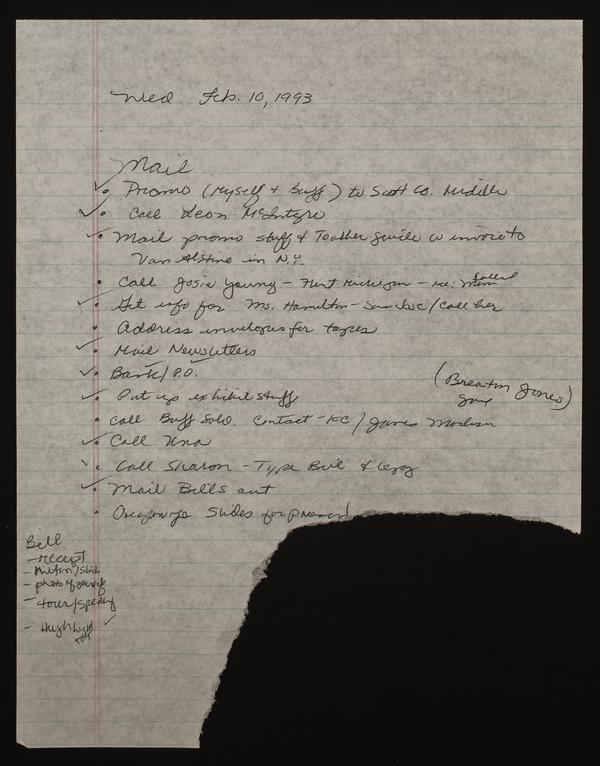 Wed. Feb. 10, 1993
Mail
Promo (Myself & Buff) to Scott Co. Middle
Call Leon McIntyre
Mail promo stuff & Teacher guide w invoice to
Van Alstine in N.Y.
Call Josie Young - Flint Michigan - Re: called
Get info for Ms. Hamilton - / Call her
Address envelopes for tapes
Mail Newsletters
Bank / P.O.
(Breaton Jones)
Put up exhibit stuff
Call Buff Solo. Contact - KC / James Madison
Call Una
Call Sharon - Type Bill & copy
Mail Bills out
Organize Slides for
Bill
- receipt
-
- photo of
- tour /
- Highlight